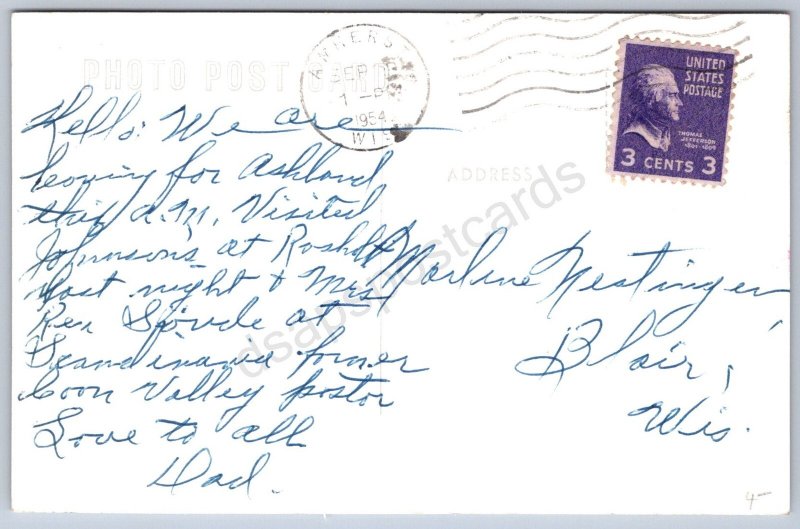 PHOTO POST CARD
SEP
1 - PM
1954
WIS
UNITED
STATES
POSTAGE
THOMAS
JEFFERSON
1801-1809
3 CENTS 3
ADDRESS
Hello: We are
leaving for Ashland
this a.m. Visited
Johnsons at Rosholt
last night & Mrs
Rev at
Scandinavia former
Coon Valley pastor
Love to all
Dad.
Marlene Nestingen,
Blair,
Wis.
dsapspostcards
4-